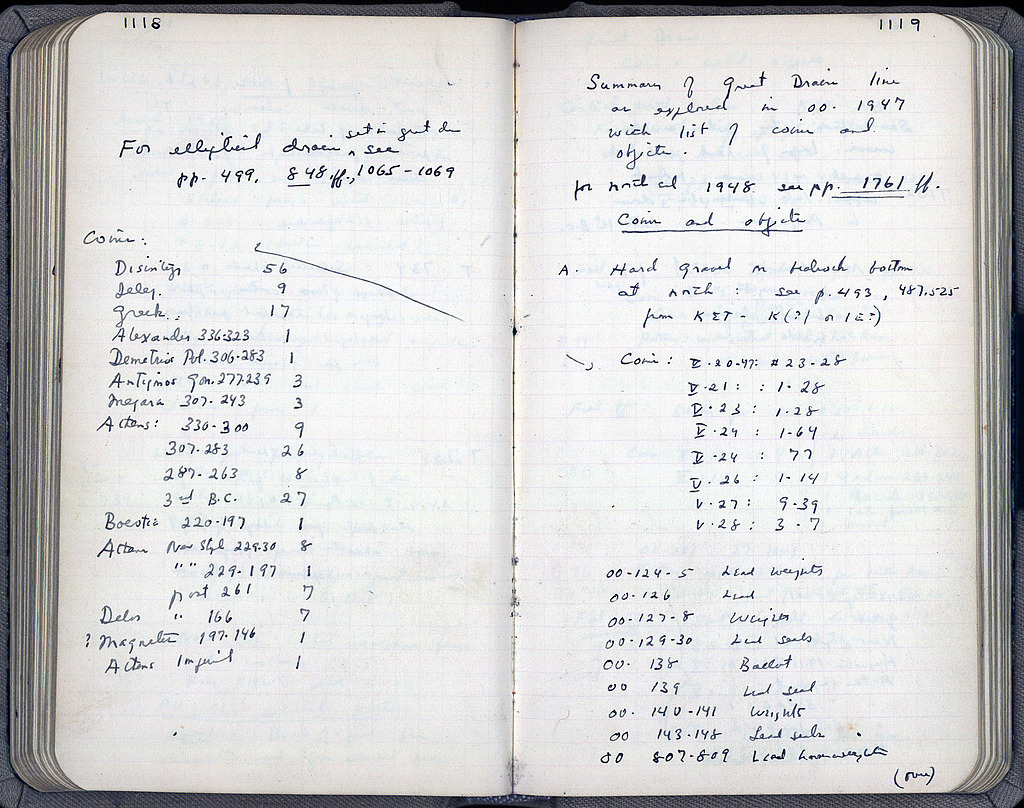 1118
set in great dr
For elliptical drain ^ see
pp. 499, 848 ff., 1065-1069
Coins:
Disintegr 56
Illeg. 9
Greek. 17
Alexander 336-323 1
Demetrius Pol. 306-283 1
Antigonos Gon. 277-239 3
Megara 307-243 3
Athens: 330-300 9
307-283 26
287-263 8
3rd B.C. 27
Boeotia 220-197 1
Athens New Style 229-30 8
" " 229-197 1
post 261 7
Delos " 166 7
? Magnetes 197-146 1
Athens Imperial 1
1119
Summary of Great Drain line
as explored in OO. 1947
with list of coins and
objects.
for north end 1948 see pp. 1761 ff.
Coins and objects
A. Hard Gravel on bedrock bottom
at north: see p. 493, 487, 525
from KET - K(?) or IE?)
Coins: V-20-47: #23-28
V-21: : 1-28
V-23 : 1-28
V-24 : 1-64
V-24 : 77
V-26 : 1-14
V-27 : 9-39
V-28 : 3-7
OO-124-5 Lead weights
OO-126 Lead
OO-127-8 Weights
OO-129-30 Lead seals
OO- 138 Ballot
OO 139 Lead seal
OO- 140-141 Weights
OO 143-148 Lead seals
OO 807-809 Lead loomweights
(over)